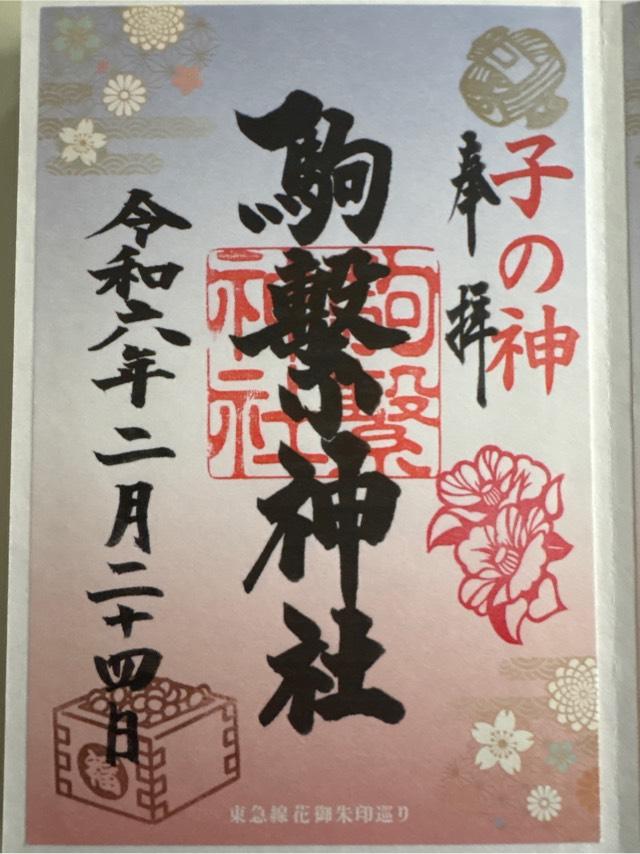 子の神
奉拝
駒繋神社
駒繋
神社
令和六年二月二十四日
福
東急線花御朱印巡り